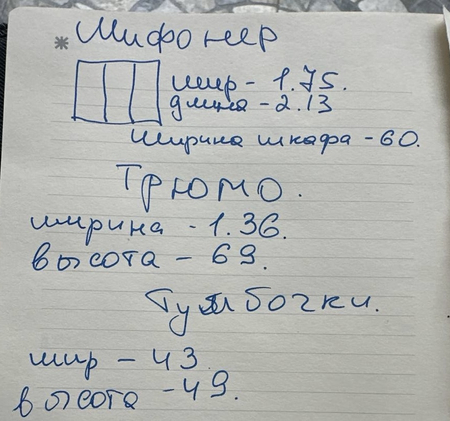 * Шифонер
шир - 1.75.
длина - 2.13
Ширина шкафа - 60.
Трюмо.
ширина - 1.36.
высота - 69.
Тумбочки.
шир - 43
высота - 49.